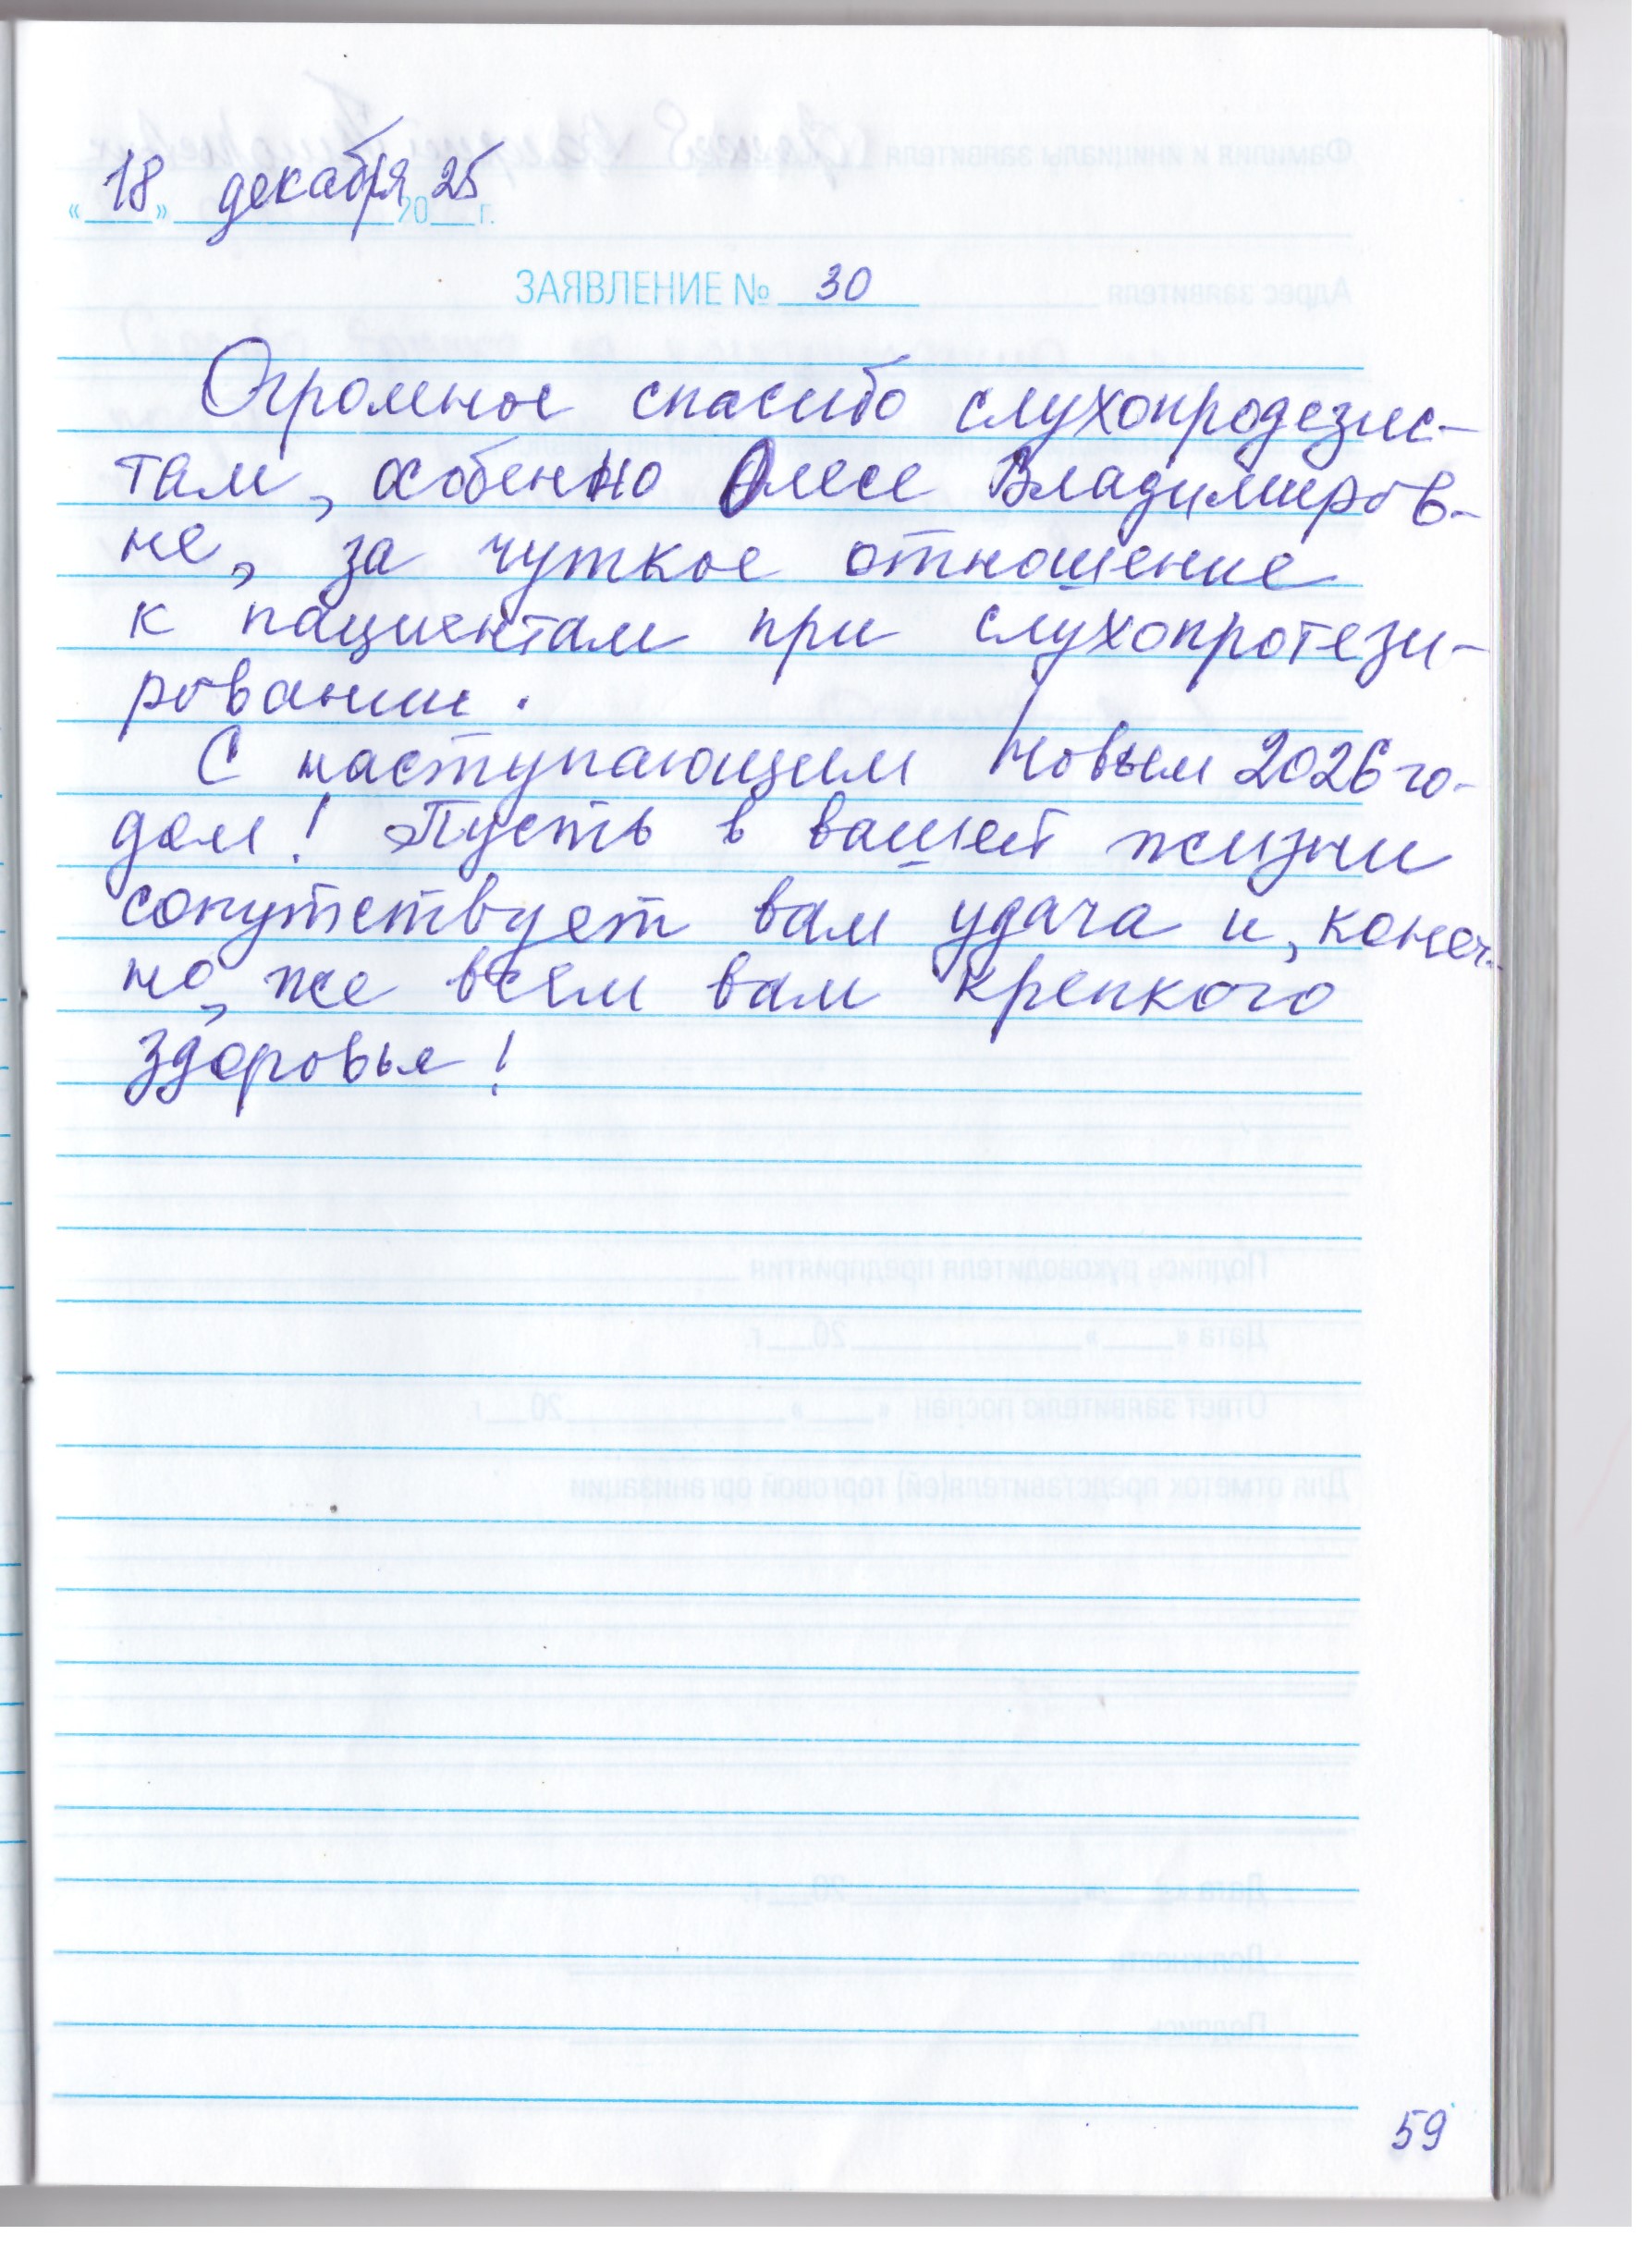 «18» декабря 2025 г.
ЗАЯВЛЕНИЕ № 30
Огромное спасибо слухопродезис-
там, особенно Олесе Владимиров-
не, за чуткое отношение
к пациентам при слухопротези-
ровании.
С наступающим Новым 2026 го-
дом! Пусть в вашей жизни
сопутствует вам удача и, конеч-
но, же всем вам крепкого
здоровья!
59